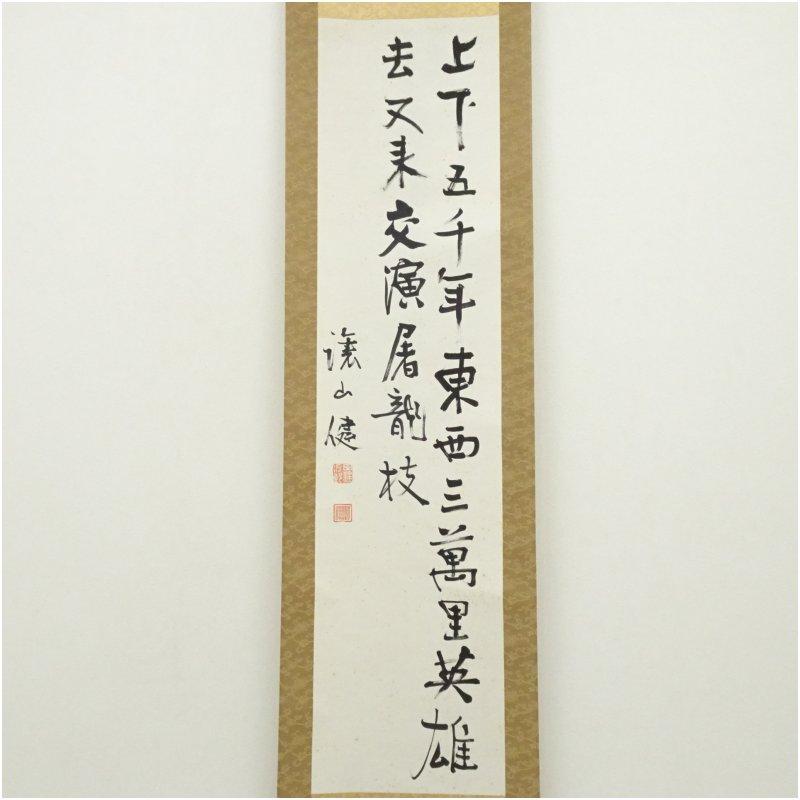 上下五千年東西三萬里英雄
去又来交演屠龍技
譲山健